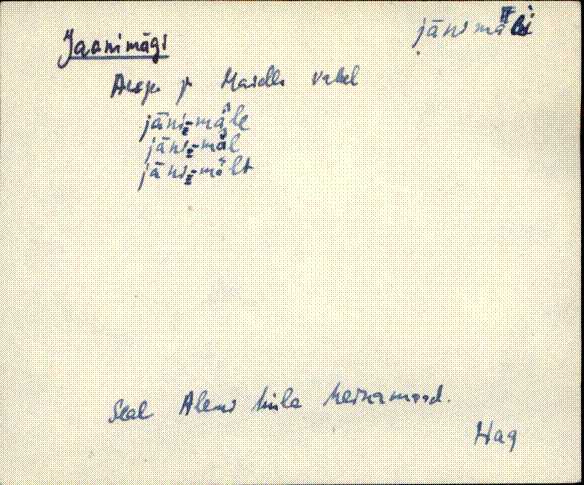 Jaanimägi
jānimä̆gi
Aespa ja Maidla vahel
jāni-mäle
jāni-mäl
jāni-mält
Seal Alemi küla heinamaad.
Hag